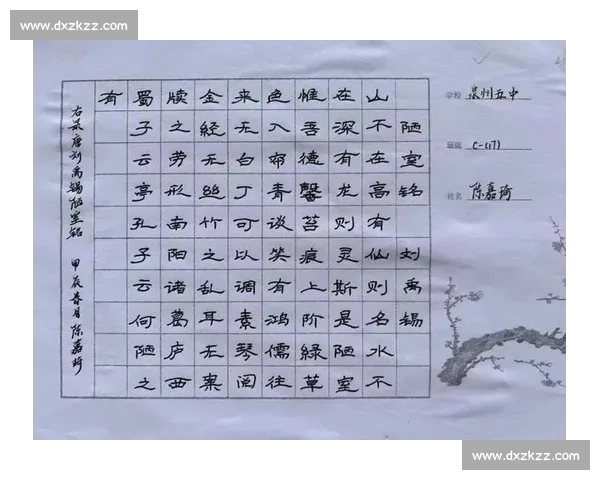 www.dxzkzz.com
陋室铭 刘禹锡
山不在高有仙则名水不
在深有龙则灵斯是陋室
惟吾德馨苔痕上阶緑草
色入帘青谈笑有鸿儒往
来无白丁可以调素琴阅
金经无丝竹之乱耳无案
牍之劳形南阳诸葛庐西
蜀子云亭孔子云何陋之
有
右录唐刘禹锡陋室铭 甲辰春月陈嘉琦
学校 泉州五中
班级 C-(17)
姓名 陈嘉琦
www.dxzkzz.com